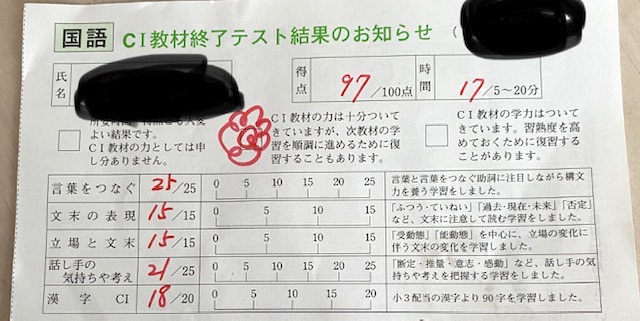 国語 CI教材終了テスト結果のお知らせ (
氏名
得点 97/100点
時間 17/5~20分
よい結果です。
CI教材の力としては申
し分ありません。
CI教材の力は十分ついて
きていますが、次教材の学
習を順調に進めるために復
習することもあります。
CI教材の学力はついて
きています。習熟度を高
めておくために復習する
ことがあります。
言葉をつなぐ 25/25 0 5 10 15 20 25 言葉と言葉をつなぐ助詞に注目しながら構文
力を養う学習をしました。
文末の表現 15/15 0 5 10 15 「ふつう・ていねい」「過去・現在・未来」「否定」
など、文末に注意して読む学習をしました。
立場と文末 15/15 0 5 10 15 「受動態」「能動態」を中心に、立場の変化に
伴う文末の変化を学習しました。
話し手の
気持ちや考え 21/25 0 5 10 15 20 25 「断定・推量・意志・感動」など、話し手の気
持ちや考えを把握する学習をしました。
漢字CI 18/20 0 5 10 15 20 小3配当の漢字より90字を学習しました。